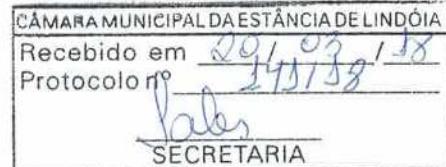 CÂMARA MUNICIPAL DA ESTÂNCIA DE LINDÓIA
Recebido em 20 / 03 / 18
Protocolo nº 141/18
SECRETARIA